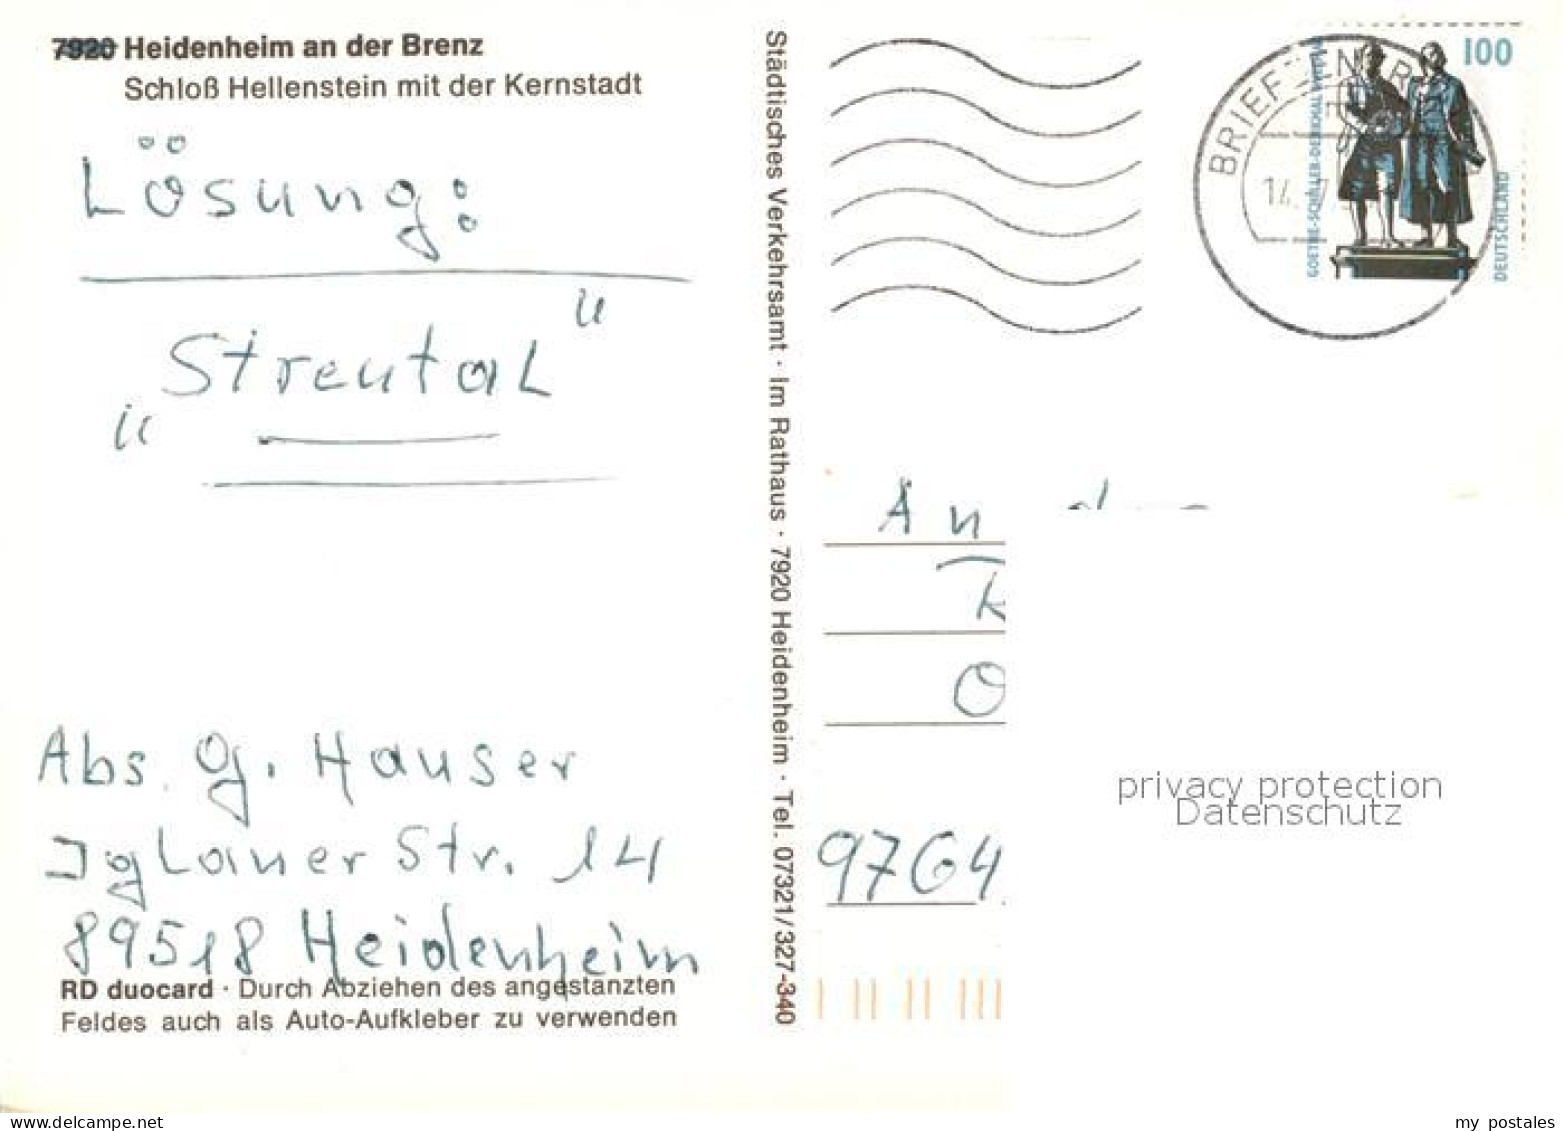 7920 Heidenheim an der Brenz
Schloß Hellenstein mit der Kernstadt
Lösung:
"Streutal"
Abs. G. Hauser
Iglauer Str. 14
89518 Heidenheim
RD duocard · Durch Abziehen des angestanzten
Feldes auch als Auto-Aufkleber zu verwenden
Städtisches Verkehrsamt · Im Rathaus · 7920 Heidenheim · Tel. 07321/327-340
BRIEFZENTR
14. 7
100
GOETHE-SCHILLER-DENKMAL WEIMAR
DEUTSCHLAND
An
9764
privacy protection
Datenschutz
my postales